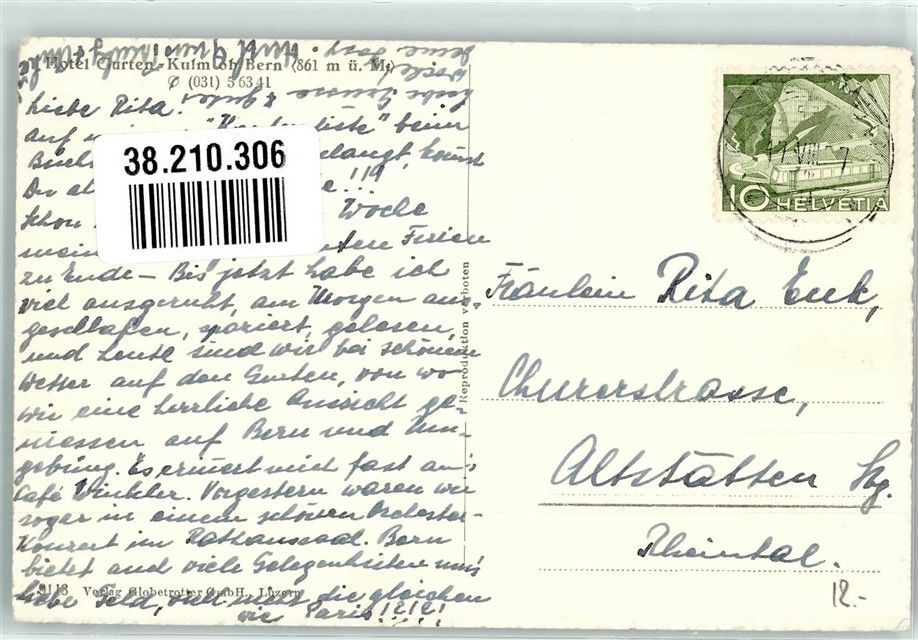 Hotel Gurten-Kulm ob Bern (861 m ü. M.)
✆ (031) 5 63 41
Liebe Rita!
auf "liste" beim
38.210.306
langt, könnt
Du e!!!
Schon Woche
mein ten Ferien
zu Ende – Bis jetzt habe ich
viel ausgeruht, am Morgen aus-
geschlafen, spaziert, gelesen,
und heute sind wir bei schönem
Wetter auf den Gurten, von wo
wir eine herrliche Aussicht ge-
niessen auf Bern und Um-
gebung. Es erinnert mich fast an's
Café Winkler. Vorgestern waren wir
sogar in einem schönen Orchester-
Konzert im Rathaussaal. Bern
bietet auch viele Gelegenheiten um's
liebe Geld, nicht die gleichen
wie Paris!!!!!
3113 Verlag Globetrotter GmbH., Luzern
Reproduktion verboten
10 HELVETIA
VIII
Fräulein Rita Eck,
Churerstrasse,
Altstätten Sg.
Rheintal.
12.-